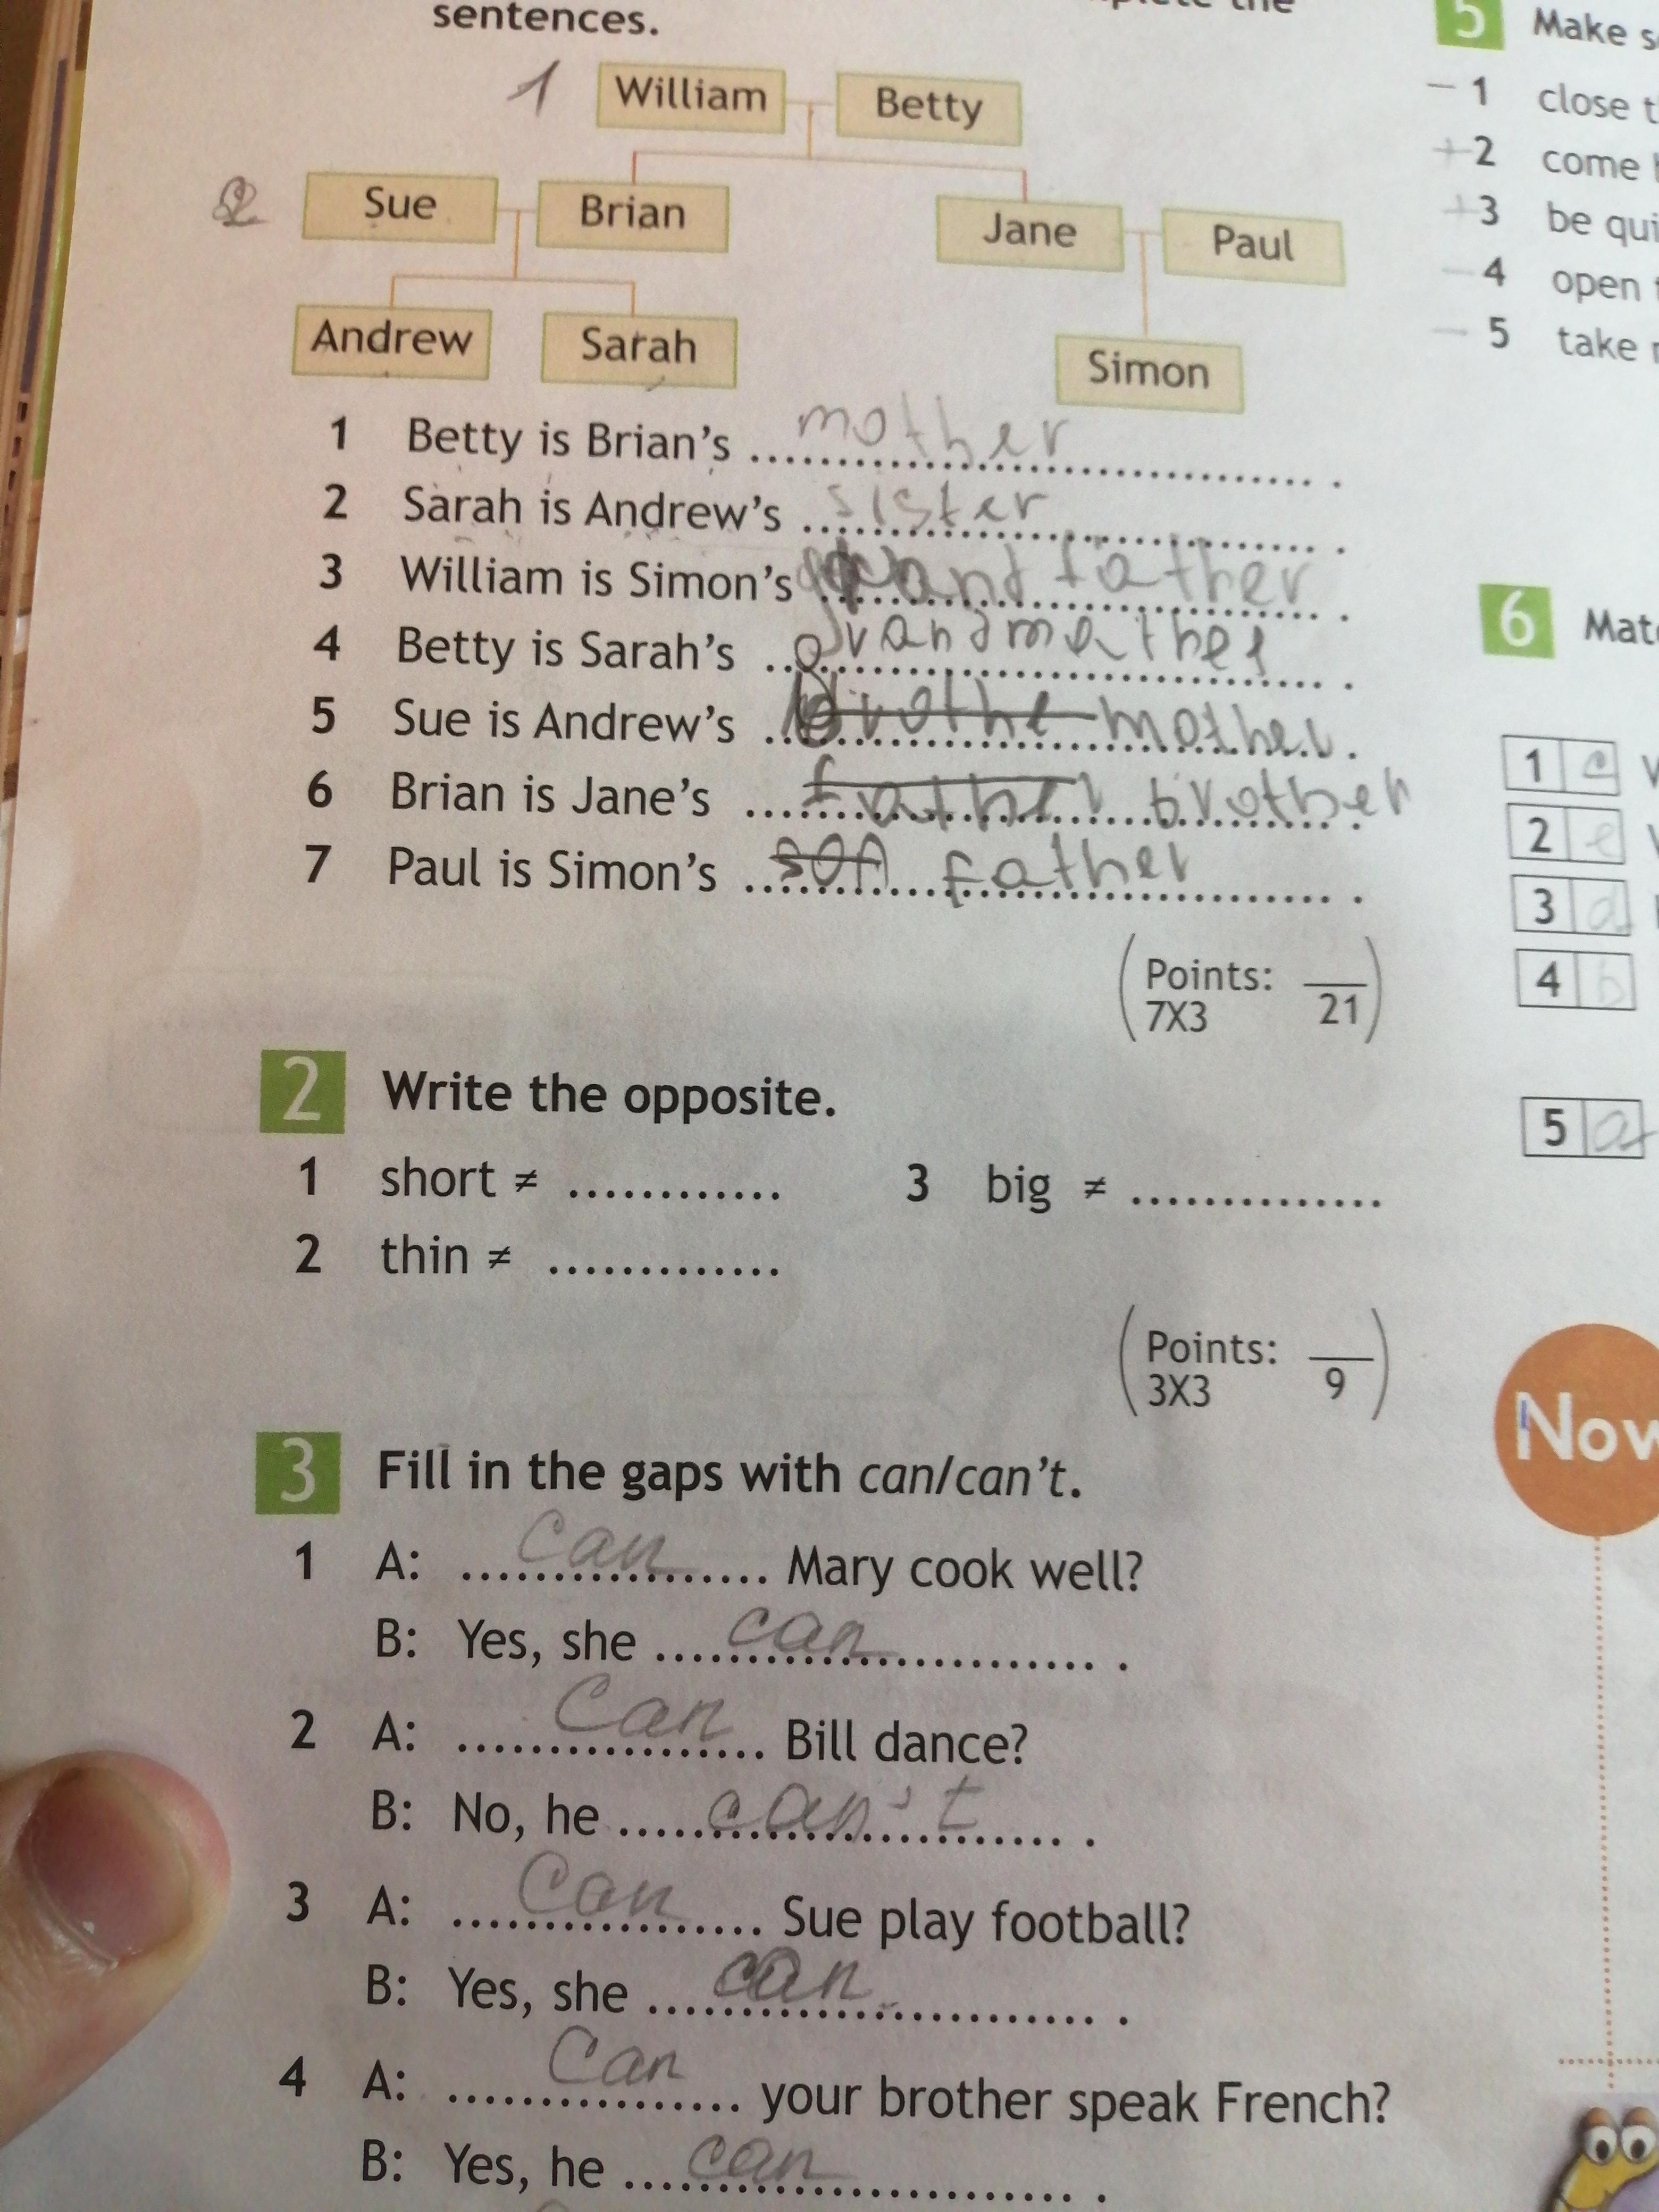 sentences.
the
1
William
Betty
2
Sue
Brian
Jane
Paul
Andrew
Sarah
Simon
1 Betty is Brian's mother .
2 Sarah is Andrew's sister .
3 William is Simon's grandfather .
4 Betty is Sarah's grandmother .
5 Sue is Andrew's brothe mother .
6 Brian is Jane's father brother .
7 Paul is Simon's son father .
(Points: 7X3 21)
2 Write the opposite.
1 short ≠ ............ 3 big ≠ ..............
2 thin ≠ .............
(Points: 3X3 9)
3 Fill in the gaps with can/can't.
1 A: Can Mary cook well?
B: Yes, she can .
2 A: Can Bill dance?
B: No, he can't .
3 A: Can Sue play football?
B: Yes, she can .
4 A: Can your brother speak French?
B: Yes, he can .
5 Make
- 1 close
+ 2 come
+ 3 be
- 4 open
- 5 take
6
1 c
2 e
3 d
4 b
5 a